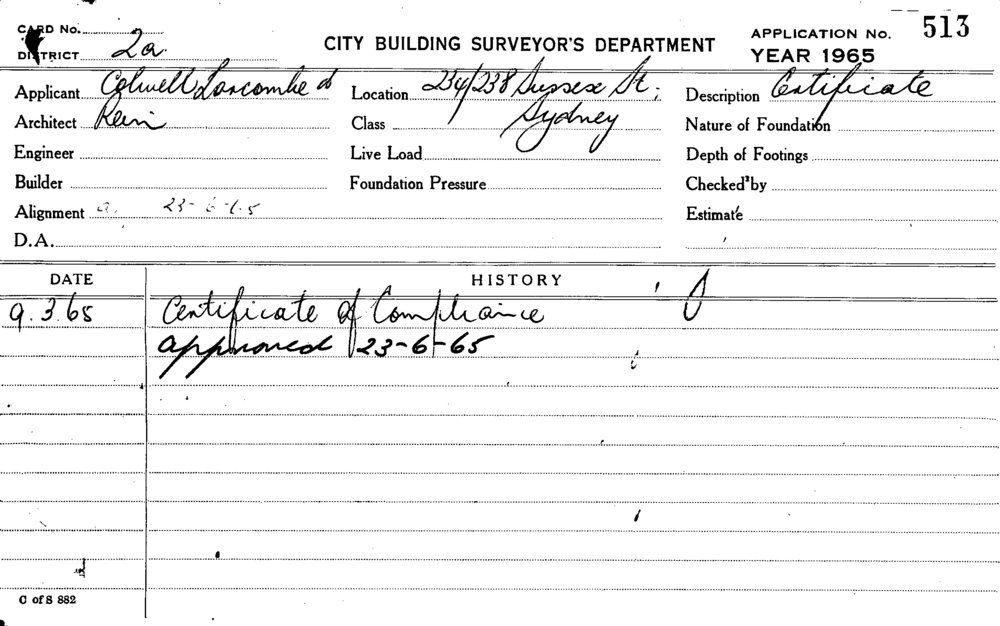 CARD No.
DISTRICT 2a
CITY BUILDING SURVEYOR'S DEPARTMENT
APPLICATION No. 513
YEAR 1965
Applicant Colwell Larcombe &
Location 234/238 Sussex St;
Description Certificate
Architect Rein
Class Sydney
Nature of Foundation
Engineer
Live Load
Depth of Footings
Builder
Foundation Pressure
Checked by
Alignment a. 23-6-65
Estimate
D.A.
DATE HISTORY
9.3.65 Certificate of Compliance
approved 23-6-65
C of S 882